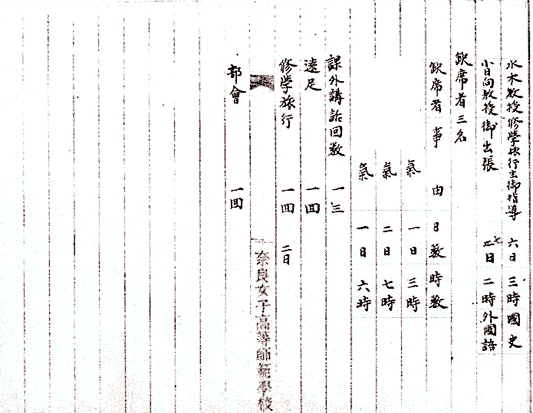 水木教授修學旅行生御指導 六日 三時 國史
小日向教授御出張 七日 二時 外國語
欠席者三名
欠席者 事由 日数 時数
氣 一日 三時
氣 二日 七時
氣 一日 六時
課外講話回数 一三
遠足 一回
修學旅行 一回 二日
奈良女子高等師範學校
部會 一回